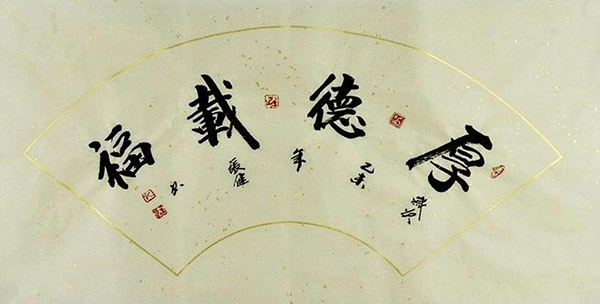 厚德載福
乙未年張健书